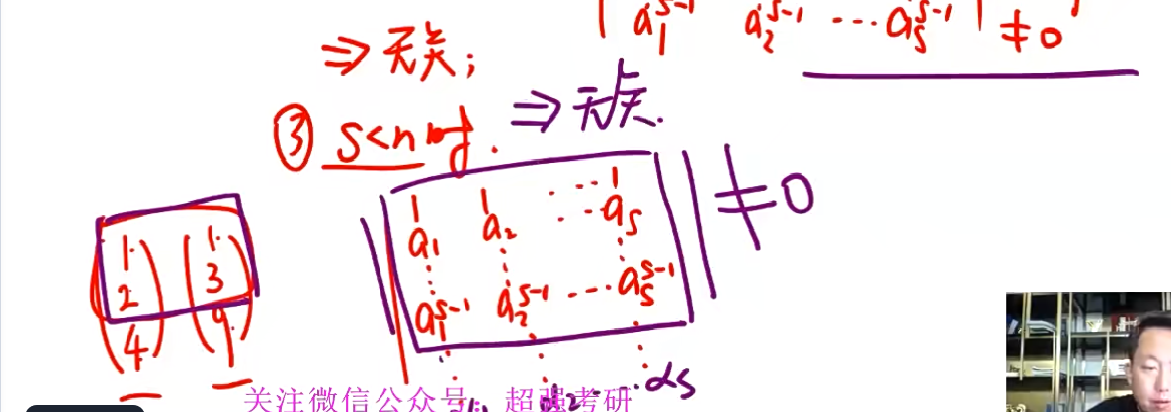 a₁ˢ⁻¹ a₂ˢ⁻¹ ⋯ aₛˢ⁻¹ | ≠0
⇒ 无关;
③ s<n时. ⇒ 无关.
1 1 ⋯ 1
a₁ a₂ ⋯ aₛ
⋮ ⋮ ⋮
a₁ˢ⁻¹ a₂ˢ⁻¹ ⋯ aₛˢ⁻¹
≠0
1 1
2 3
4 9
α₂ ⋯ αₛ
关注微信公众号：超强考研